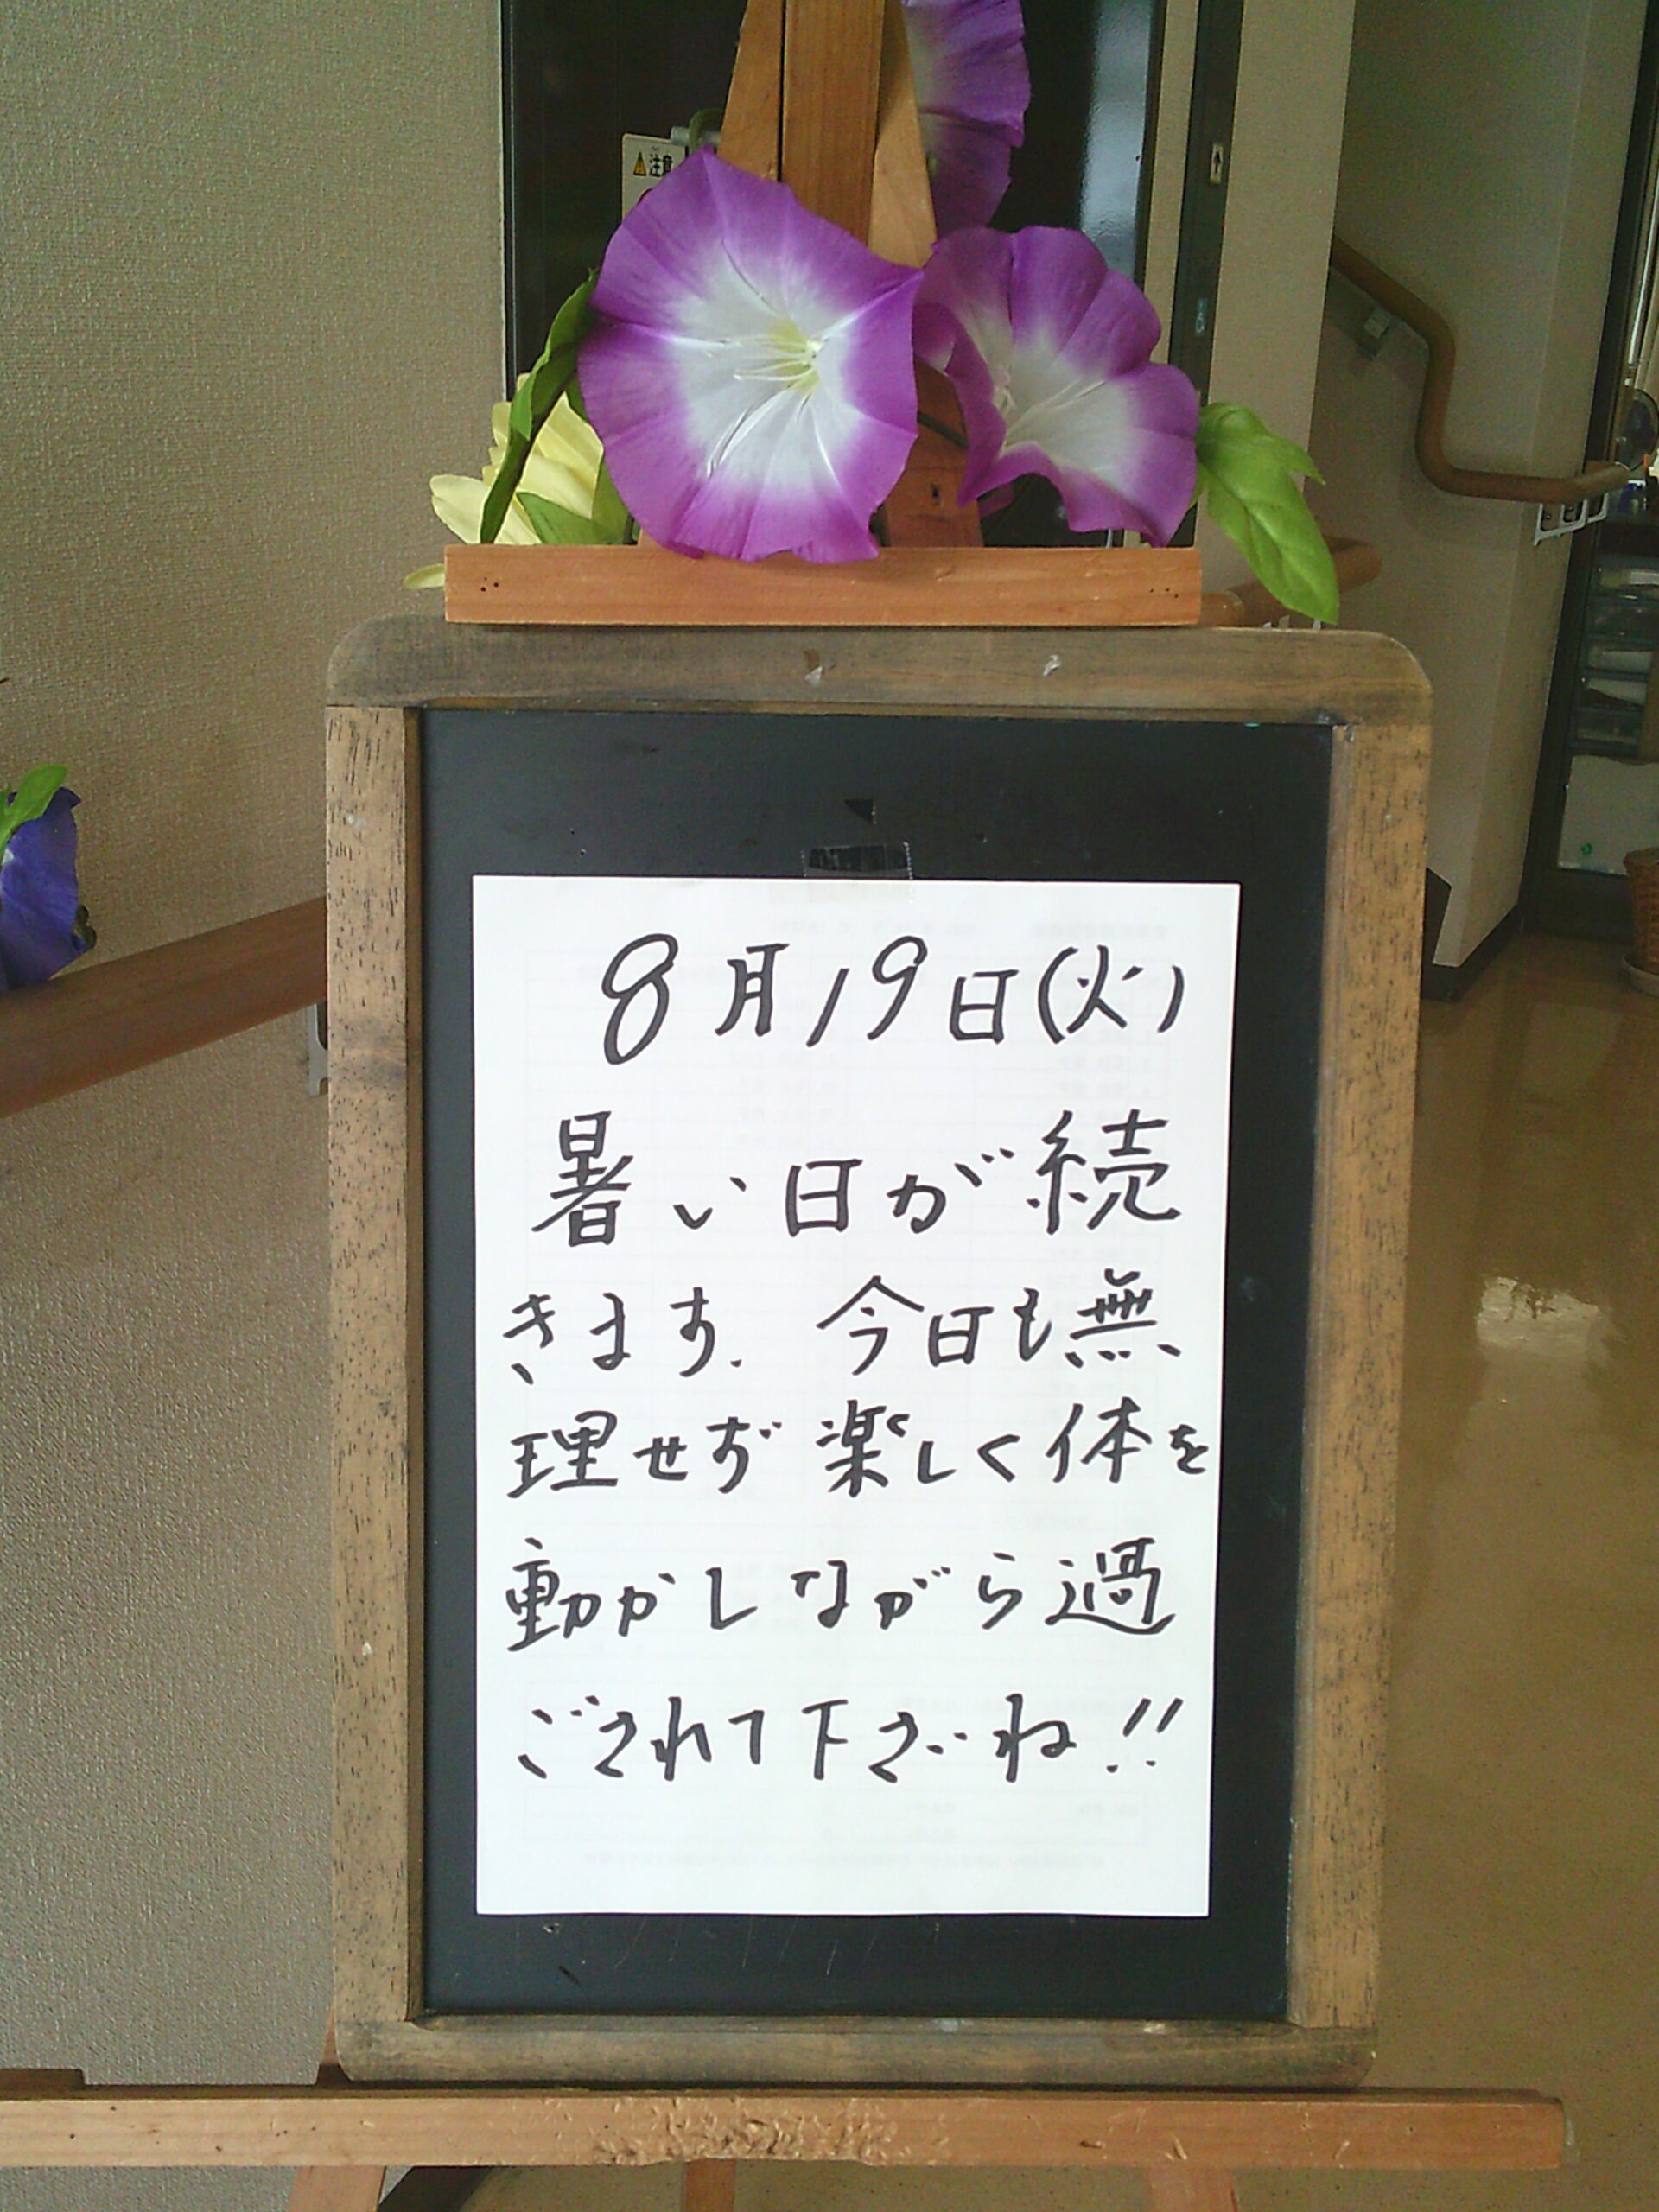 注意
8月19日(火)
暑い日が続
きます.今日も無
理せず楽しく体を
動かしながら過
ごされて下さいね!!